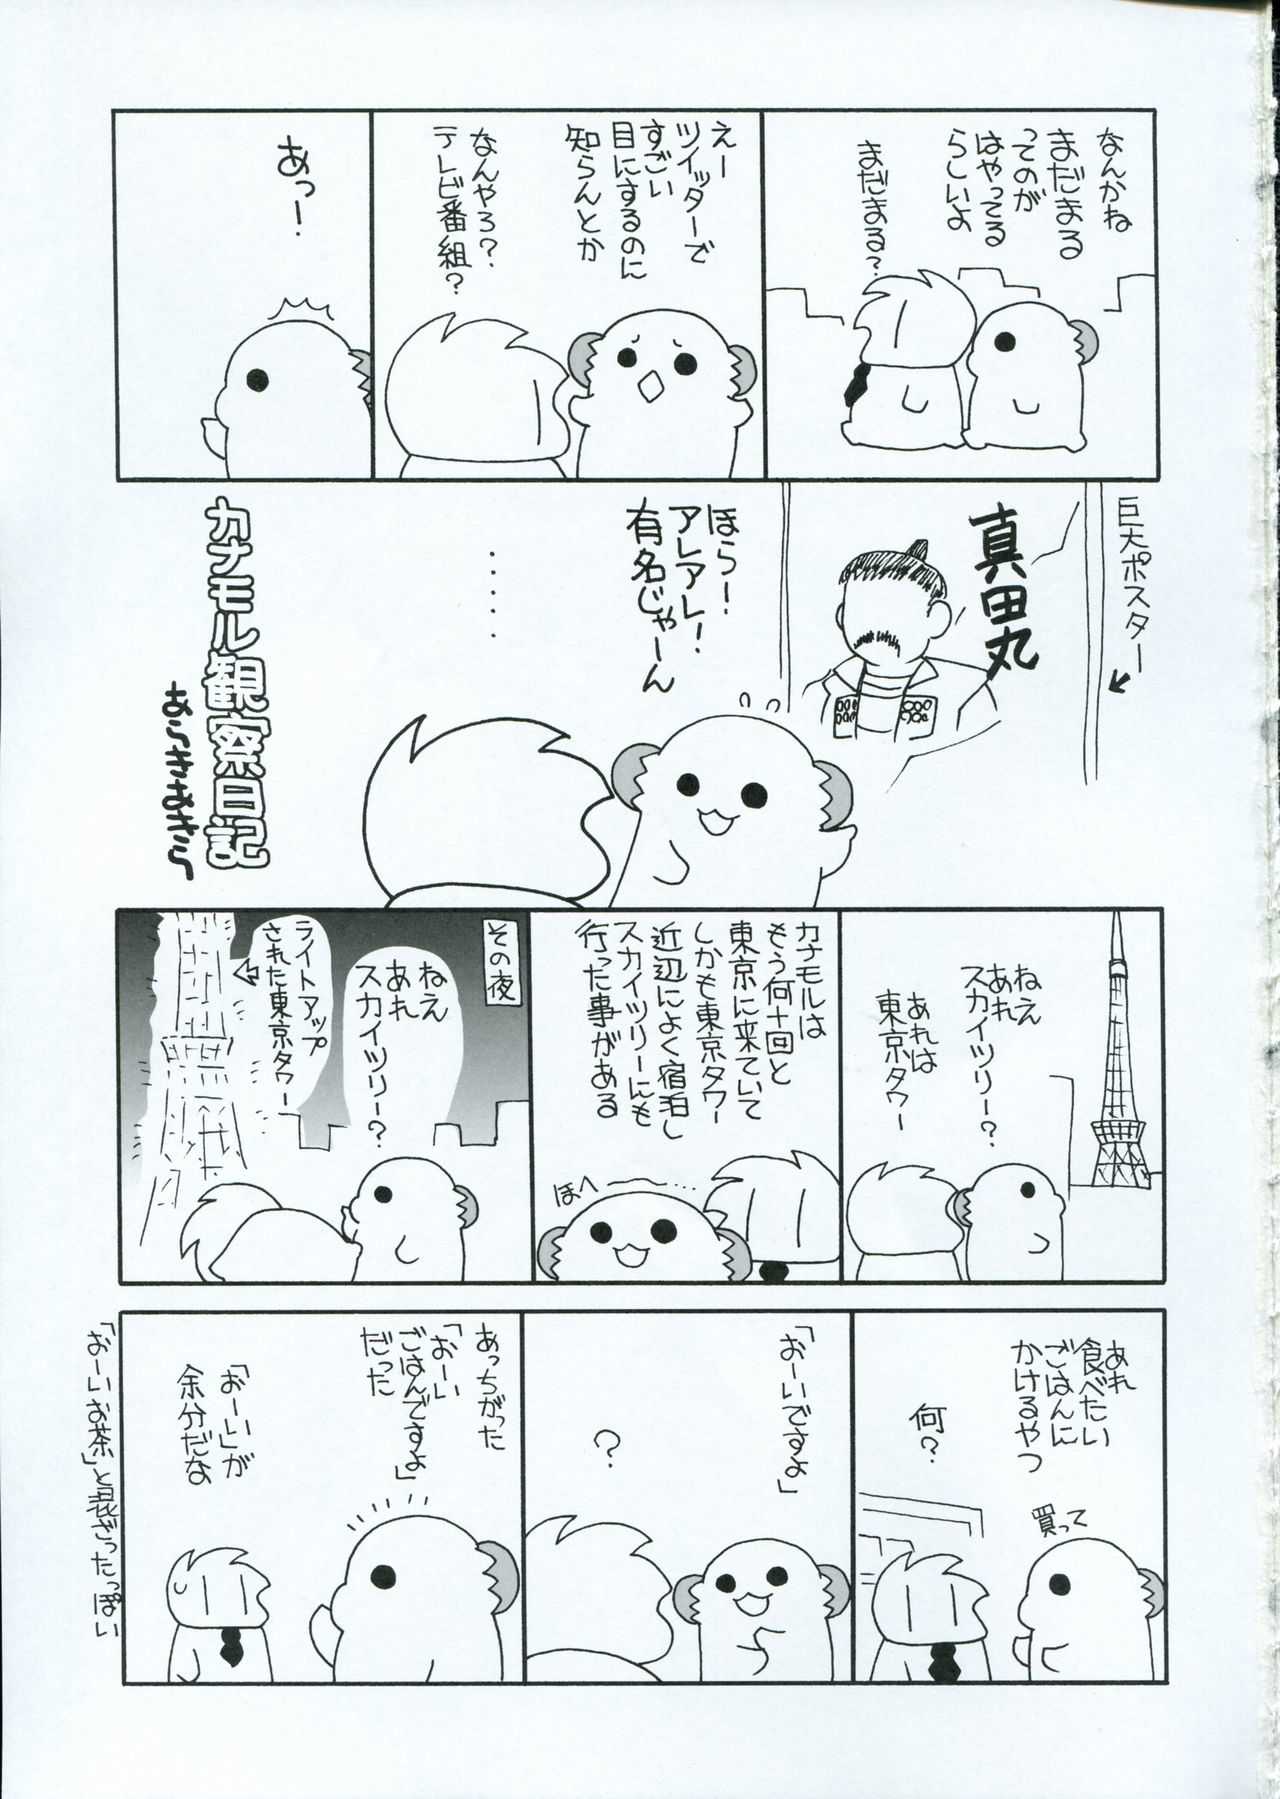 なんかね
まだまる
ってのが
はやってる
らしいよ
まだまる？
えー
ツイッターで
すごい
目にするのに
知らんとか
なんやろ？
テレビ番組？
あっ！
巨大ポスター
真田丸
ほらー！
アレアレ！
有名じゃーん
‥‥‥
カナモル観察日記
あらきあきら
ねえ
あれ
スカイツリー？
あれは
東京タワー
カナモルは
もう何十回と
東京に来ていて
しかも東京タワー
近辺によく宿泊し
スカイツリーにも
行った事がある
ほへー
その夜
ねえ
あれ
スカイツリー？
ライトアップ
された東京タワー
あれ
食べたい
ごはんに
かけるやつ
買って
何？
「おーいですよ」
？
あっちがった
「おーい
ごはんですよ」
だった
「おーい」が
余分だな
「おーいお茶」と混ざったっぽい